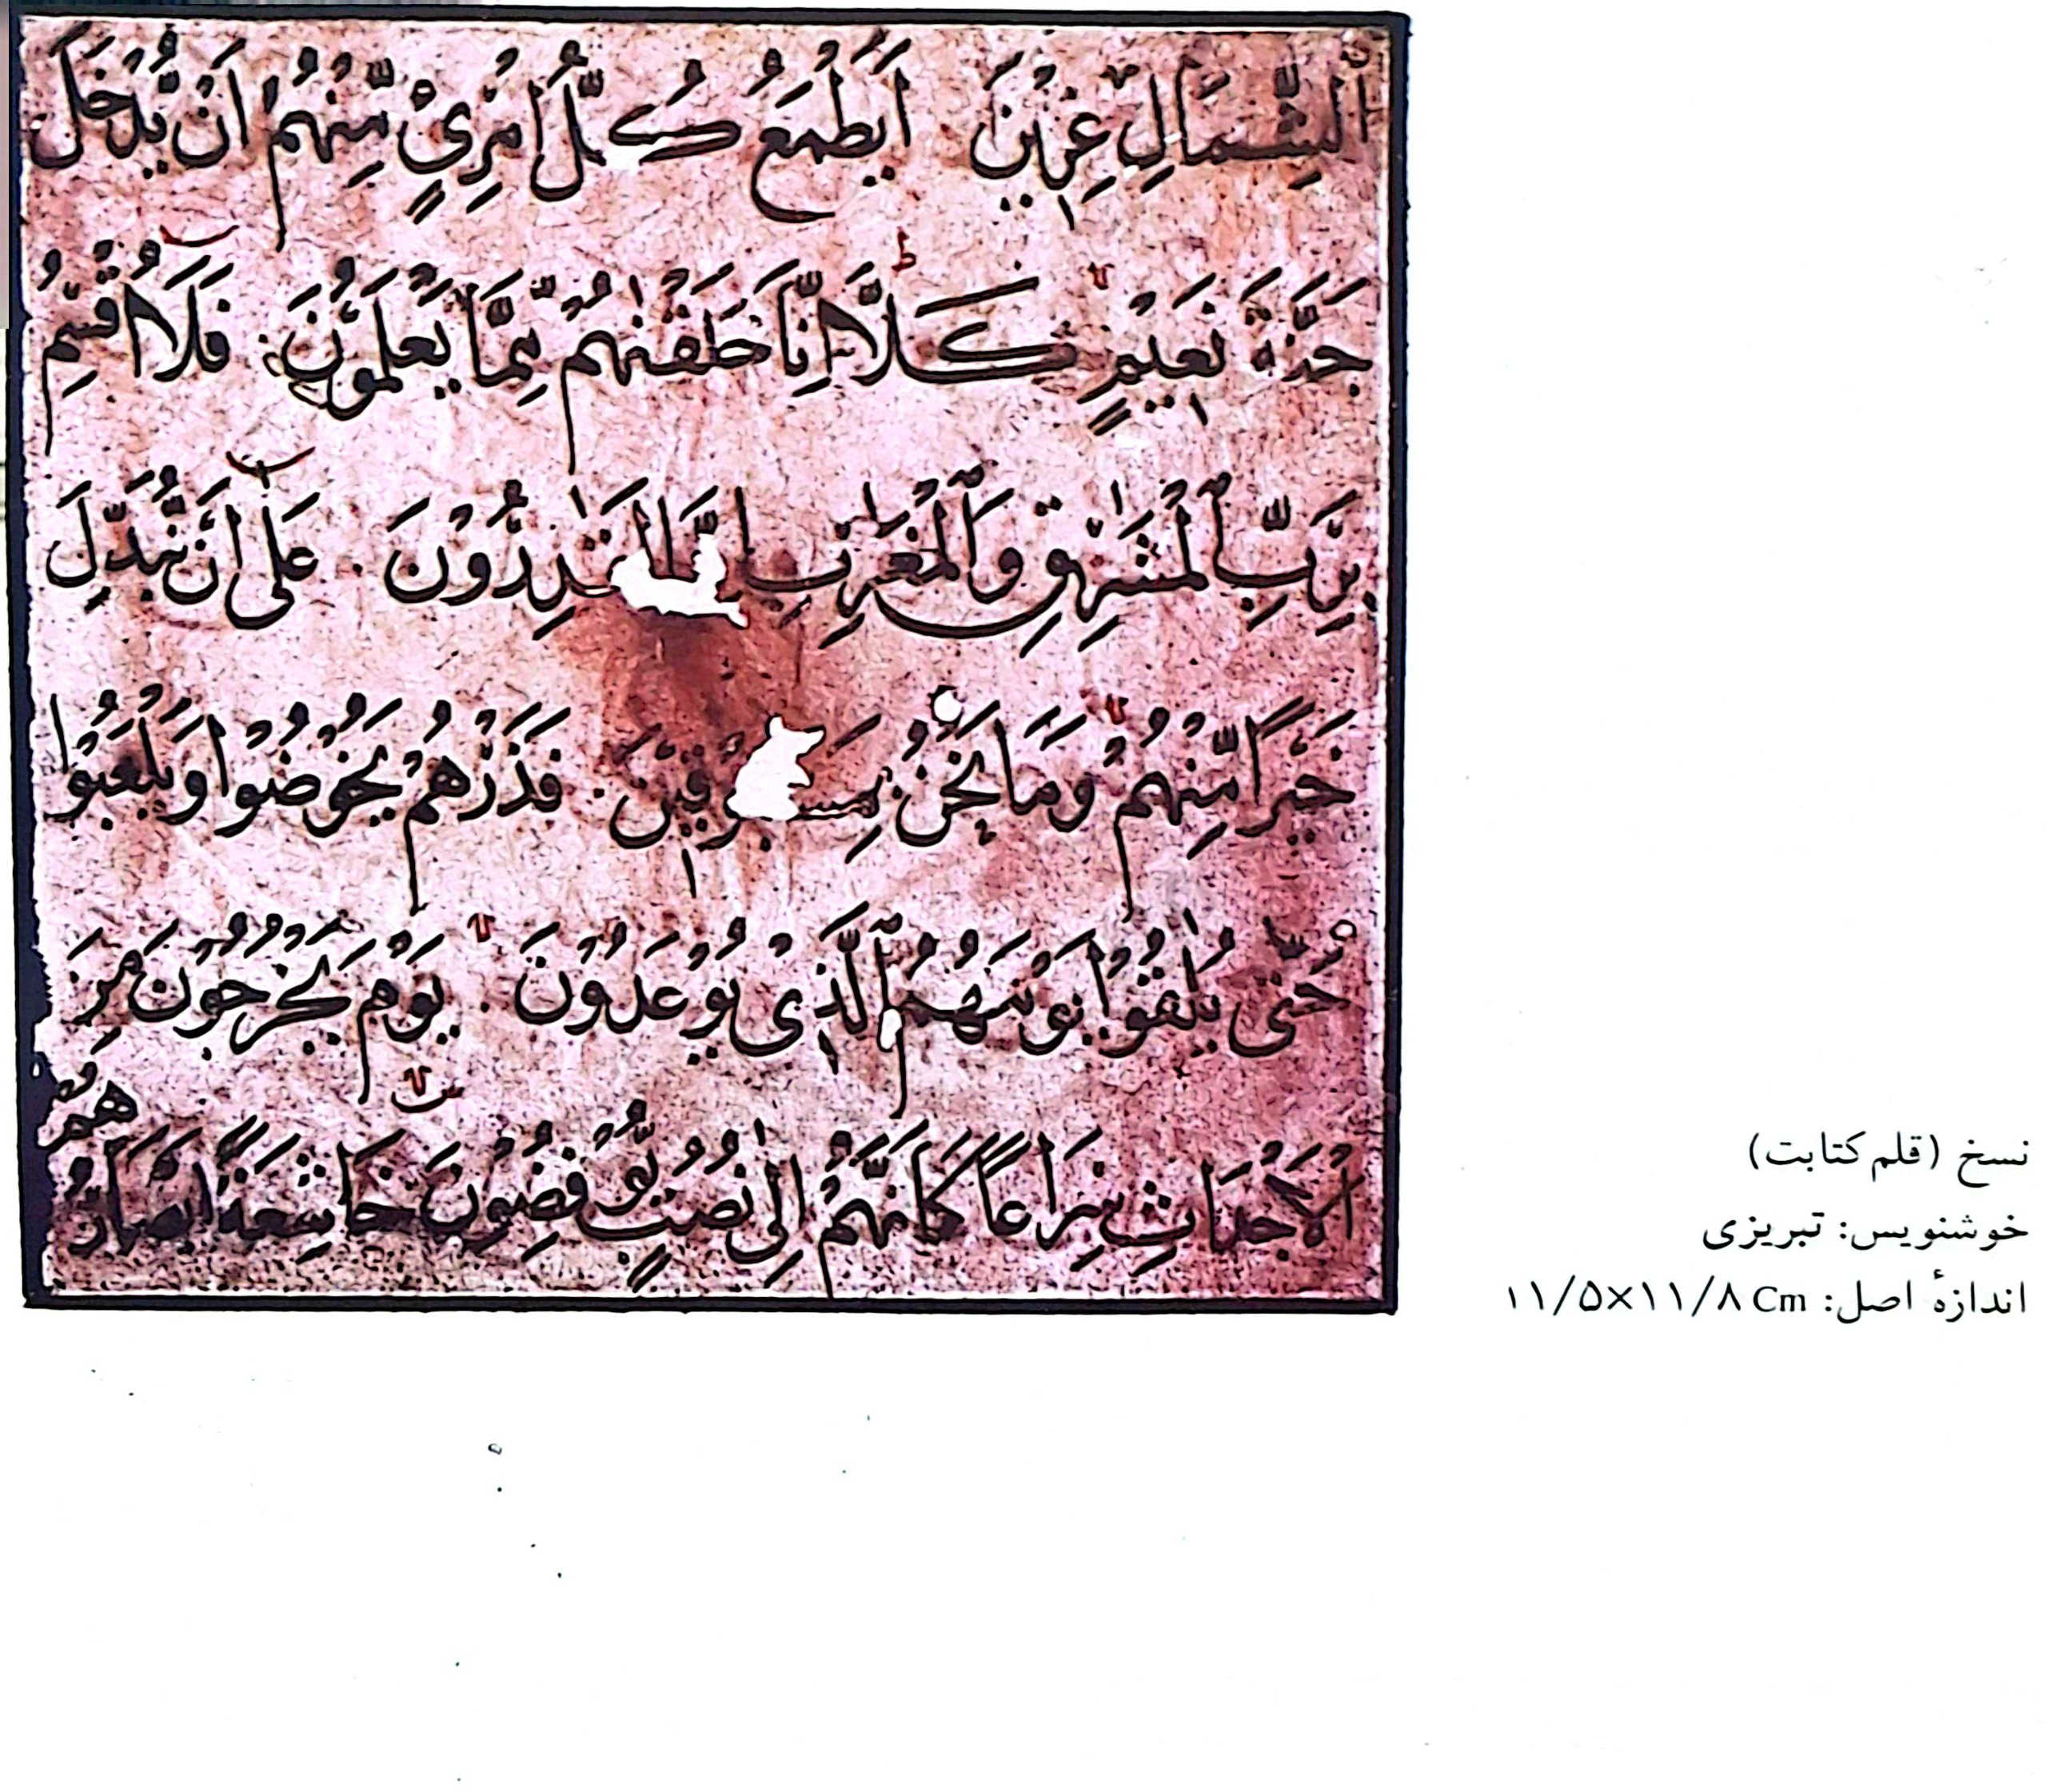 ٱلشِّمَالِ عِزِيْنَ اَيَطْمَعُ كُلُّ امْرِئٍ مِّنْهُمْ اَنْ يُّدْخَلَ
جَنَّةَ نَعِيْمٍ كَلَّا اِنَّا خَلَقْنٰهُمْ مِّمَّا يَعْلَمُوْنَ فَلَا اُقْسِمُ
بِرَبِّ ٱلْمَشٰرِقِ وَٱلْمَغٰرِبِ اِنَّا لَقٰدِرُوْنَ عَلٰى اَنْ نُّبَدِّلَ
خَيْرًا مِّنْهُمْ وَمَا نَحْنُ بِمَسْبُوْقِيْنَ فَذَرْهُمْ يَخُوْضُوْا وَيَلْعَبُوْا
حَتّٰى يُلٰقُوْا يَوْمَهُمُ ٱلَّذِىْ يُوْعَدُوْنَ يَوْمَ يَخْرُجُوْنَ مِنَ
الْاَجْدَاثِ سِرَاعًا كَاَنَّهُمْ اِلٰى نُصُبٍ يُّوْفِضُوْنَ خَاشِعَةً اَبْصَارُ
هُمْ
نسخ (قلم کتابت)
خوشنویس: تبریزی
اندازهٔ اصل: ۱۱/۵×۱۱/۸ Cm